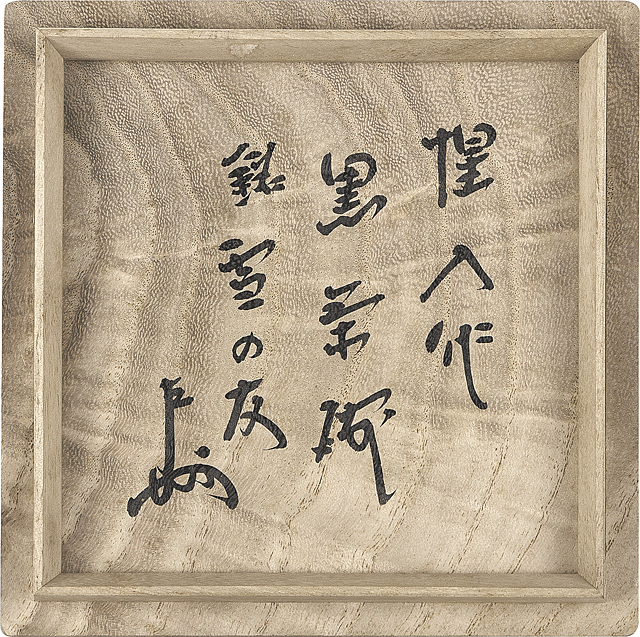 惺入作
黒茶碗
銘雪の友